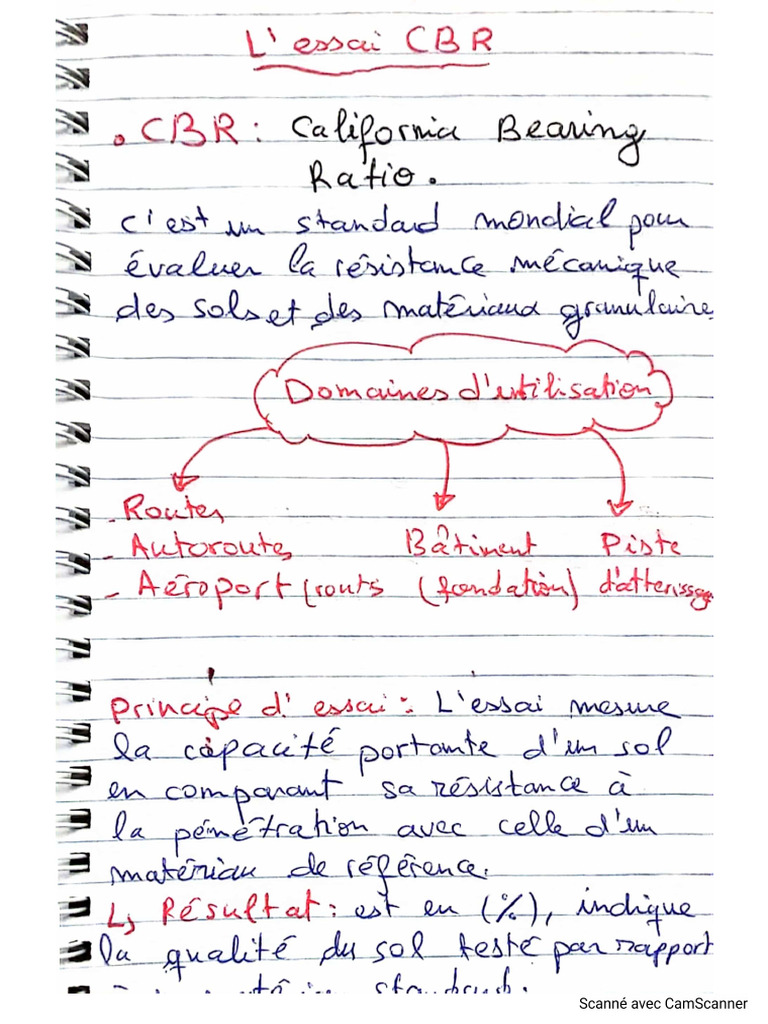 L'essai CBR
. CBR : California Bearing
Ratio.
c'est un standard mondial pour
évaluer la résistance mécanique
des sols et des matériaux granulaire
Domaines d'utilisation
- Routes
- Autoroutes Bâtiment Piste
- Aéroport (routs (fondation) d'atterissage
principe d'essai : L'essai mesure
la capacité portante d'un sol
en comparant sa résistance à
la pénétration avec celle d'un
matériau de référence.
↳ Résultat : est en (%), indique
la qualité du sol testé par rapport
standard.
Scanné avec CamScanner